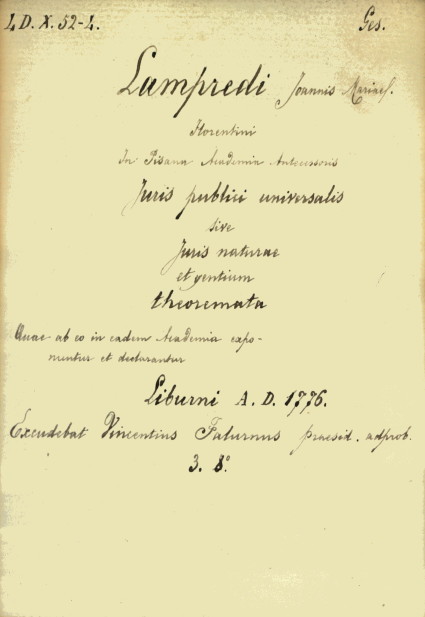 4 D. X. 52-4. Ges.
Lampredi Joannis Mariae
Florentini
In Pisana Academia Antecessoris
Juris publici universalis
sive
Juris naturae
et gentium
theoremata
Quae ab eo in eadem Academia expo-
nuntur et declarantur
Liburni A. D. 1776.
Excudebat Vincentius Falurnus praesid. adprob.
3. 8°